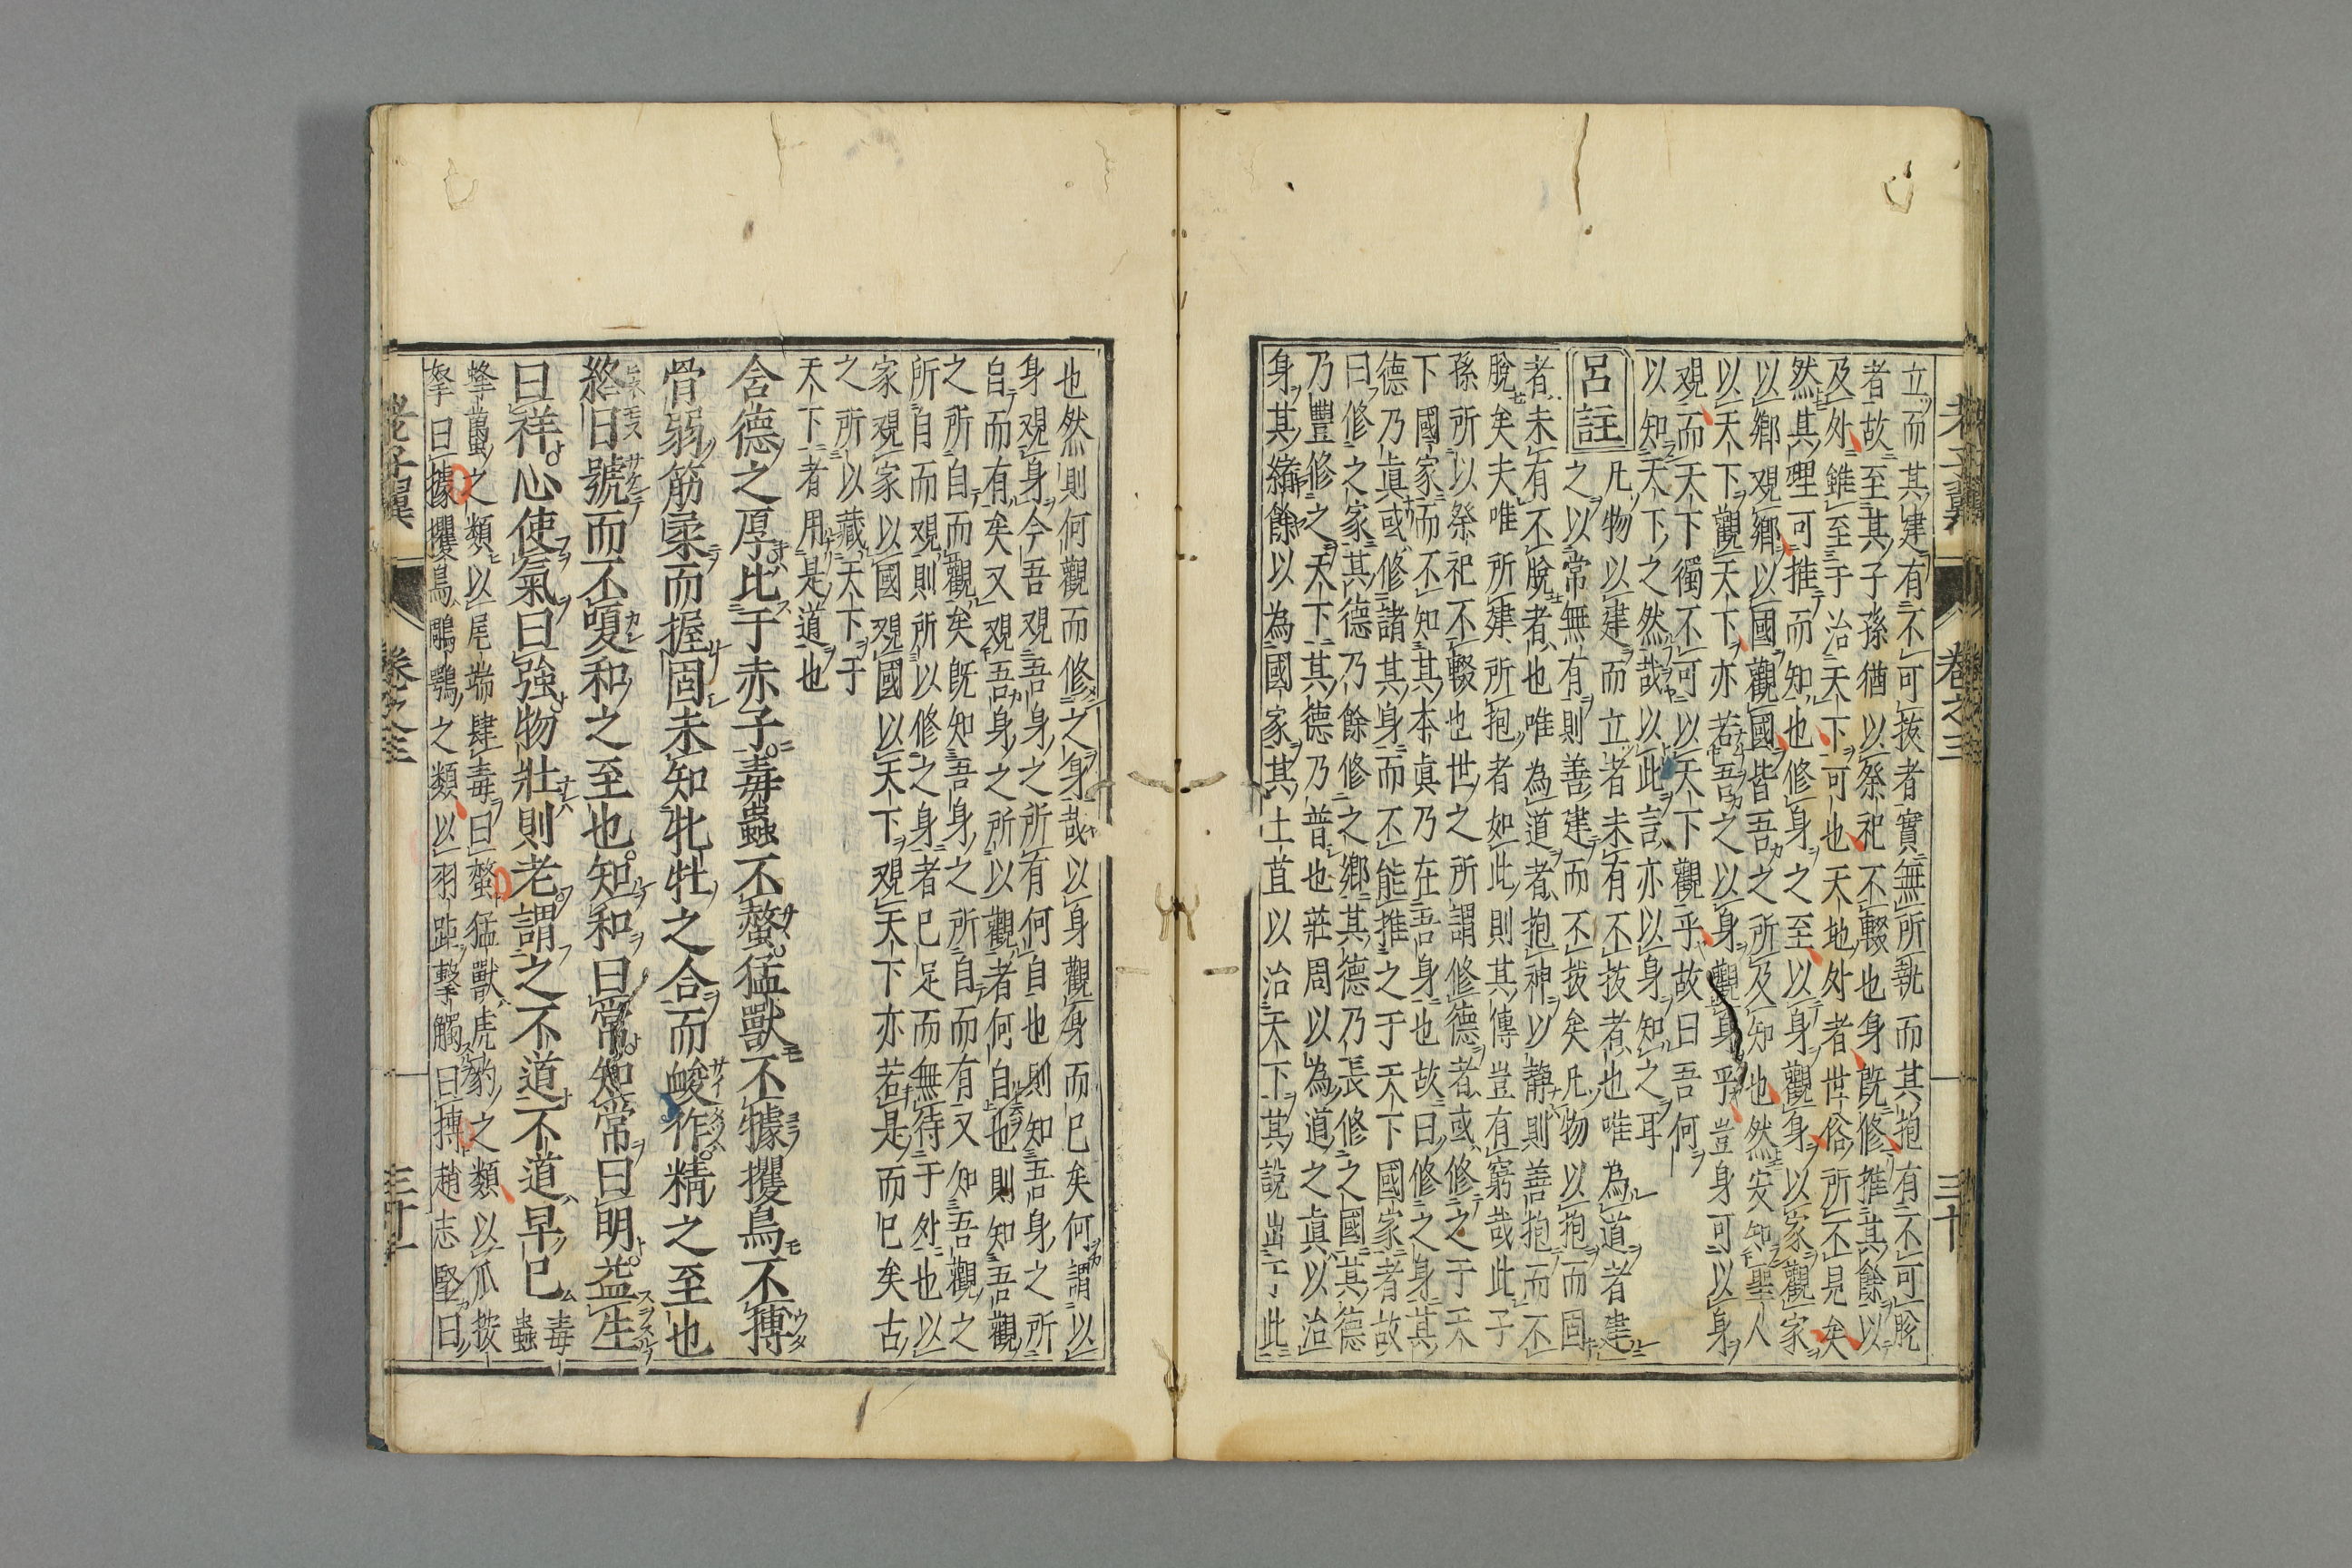 老子翼 卷之三 三十
立而其建有不可拔者實無所執而其抱有不可脫
者故至其子孫猶以祭祀不輟也身既修推其餘以
及外雖至于治天下可也天地外者世俗所不見矣
然其理可推而知也修身之至以身觀身以家觀家
以鄉觀鄉以國觀國皆吾之所及知也然安知聖人
以天下觀天下亦若吾之以身觀身乎豈身可以身
觀而天下獨不可以天下觀乎故曰吾何
以知天下之然哉以此言亦以身知之耳
呂註
凡物以建而立者未有不拔者也唯為道者建
之以常無有則善建而不拔矣凡物以抱而固
者未有不脫者也唯為道者抱神以靜則善抱而不
脫矣夫唯所建所抱者如此則其傳豈有窮哉此子
孫所以祭祀不輟也世之所謂修德者或修之于天
下國家而不知其本真乃在吾身也故曰修之身其
德乃真或修諸其身而不能推之于天下國家者故
曰修之家其德乃餘修之鄉其德乃長修之國其德
乃豐修之天下其德乃普也莊周以為道之真以治
身其緒餘以為國家其土苴以治天下其說出于此
也然則何觀而修之身哉以身觀身而已矣何謂以
身觀身今吾觀吾身之所有何自也則知吾身之所
自而有矣又觀吾身之所以觀者何自也則知吾觀
之所自而觀矣既知吾身之所自而有又知吾觀之
所自而觀則所以修之身者已足而無待于外也以
家觀家以國觀國以天下觀天下亦若是而已矣古
之所以藏天下于
天下者用是道也
含德之厚比于赤子毒蟲不螫猛獸不據攫鳥不搏
骨弱筋柔而握固未知牝牡之合而峻作精之至也
終日號而不嗄和之至也知和曰常知常曰明益生
曰祥心使氣曰強物壯則老謂之不道不道早已 毒蟲
蜂蠆之類以尾端肆毒曰螫猛獸虎豹之類以爪按
拏曰據攫鳥鵰鶚之類以羽距擊觸曰摶趙志堅曰
老子翼 卷之三 三十一